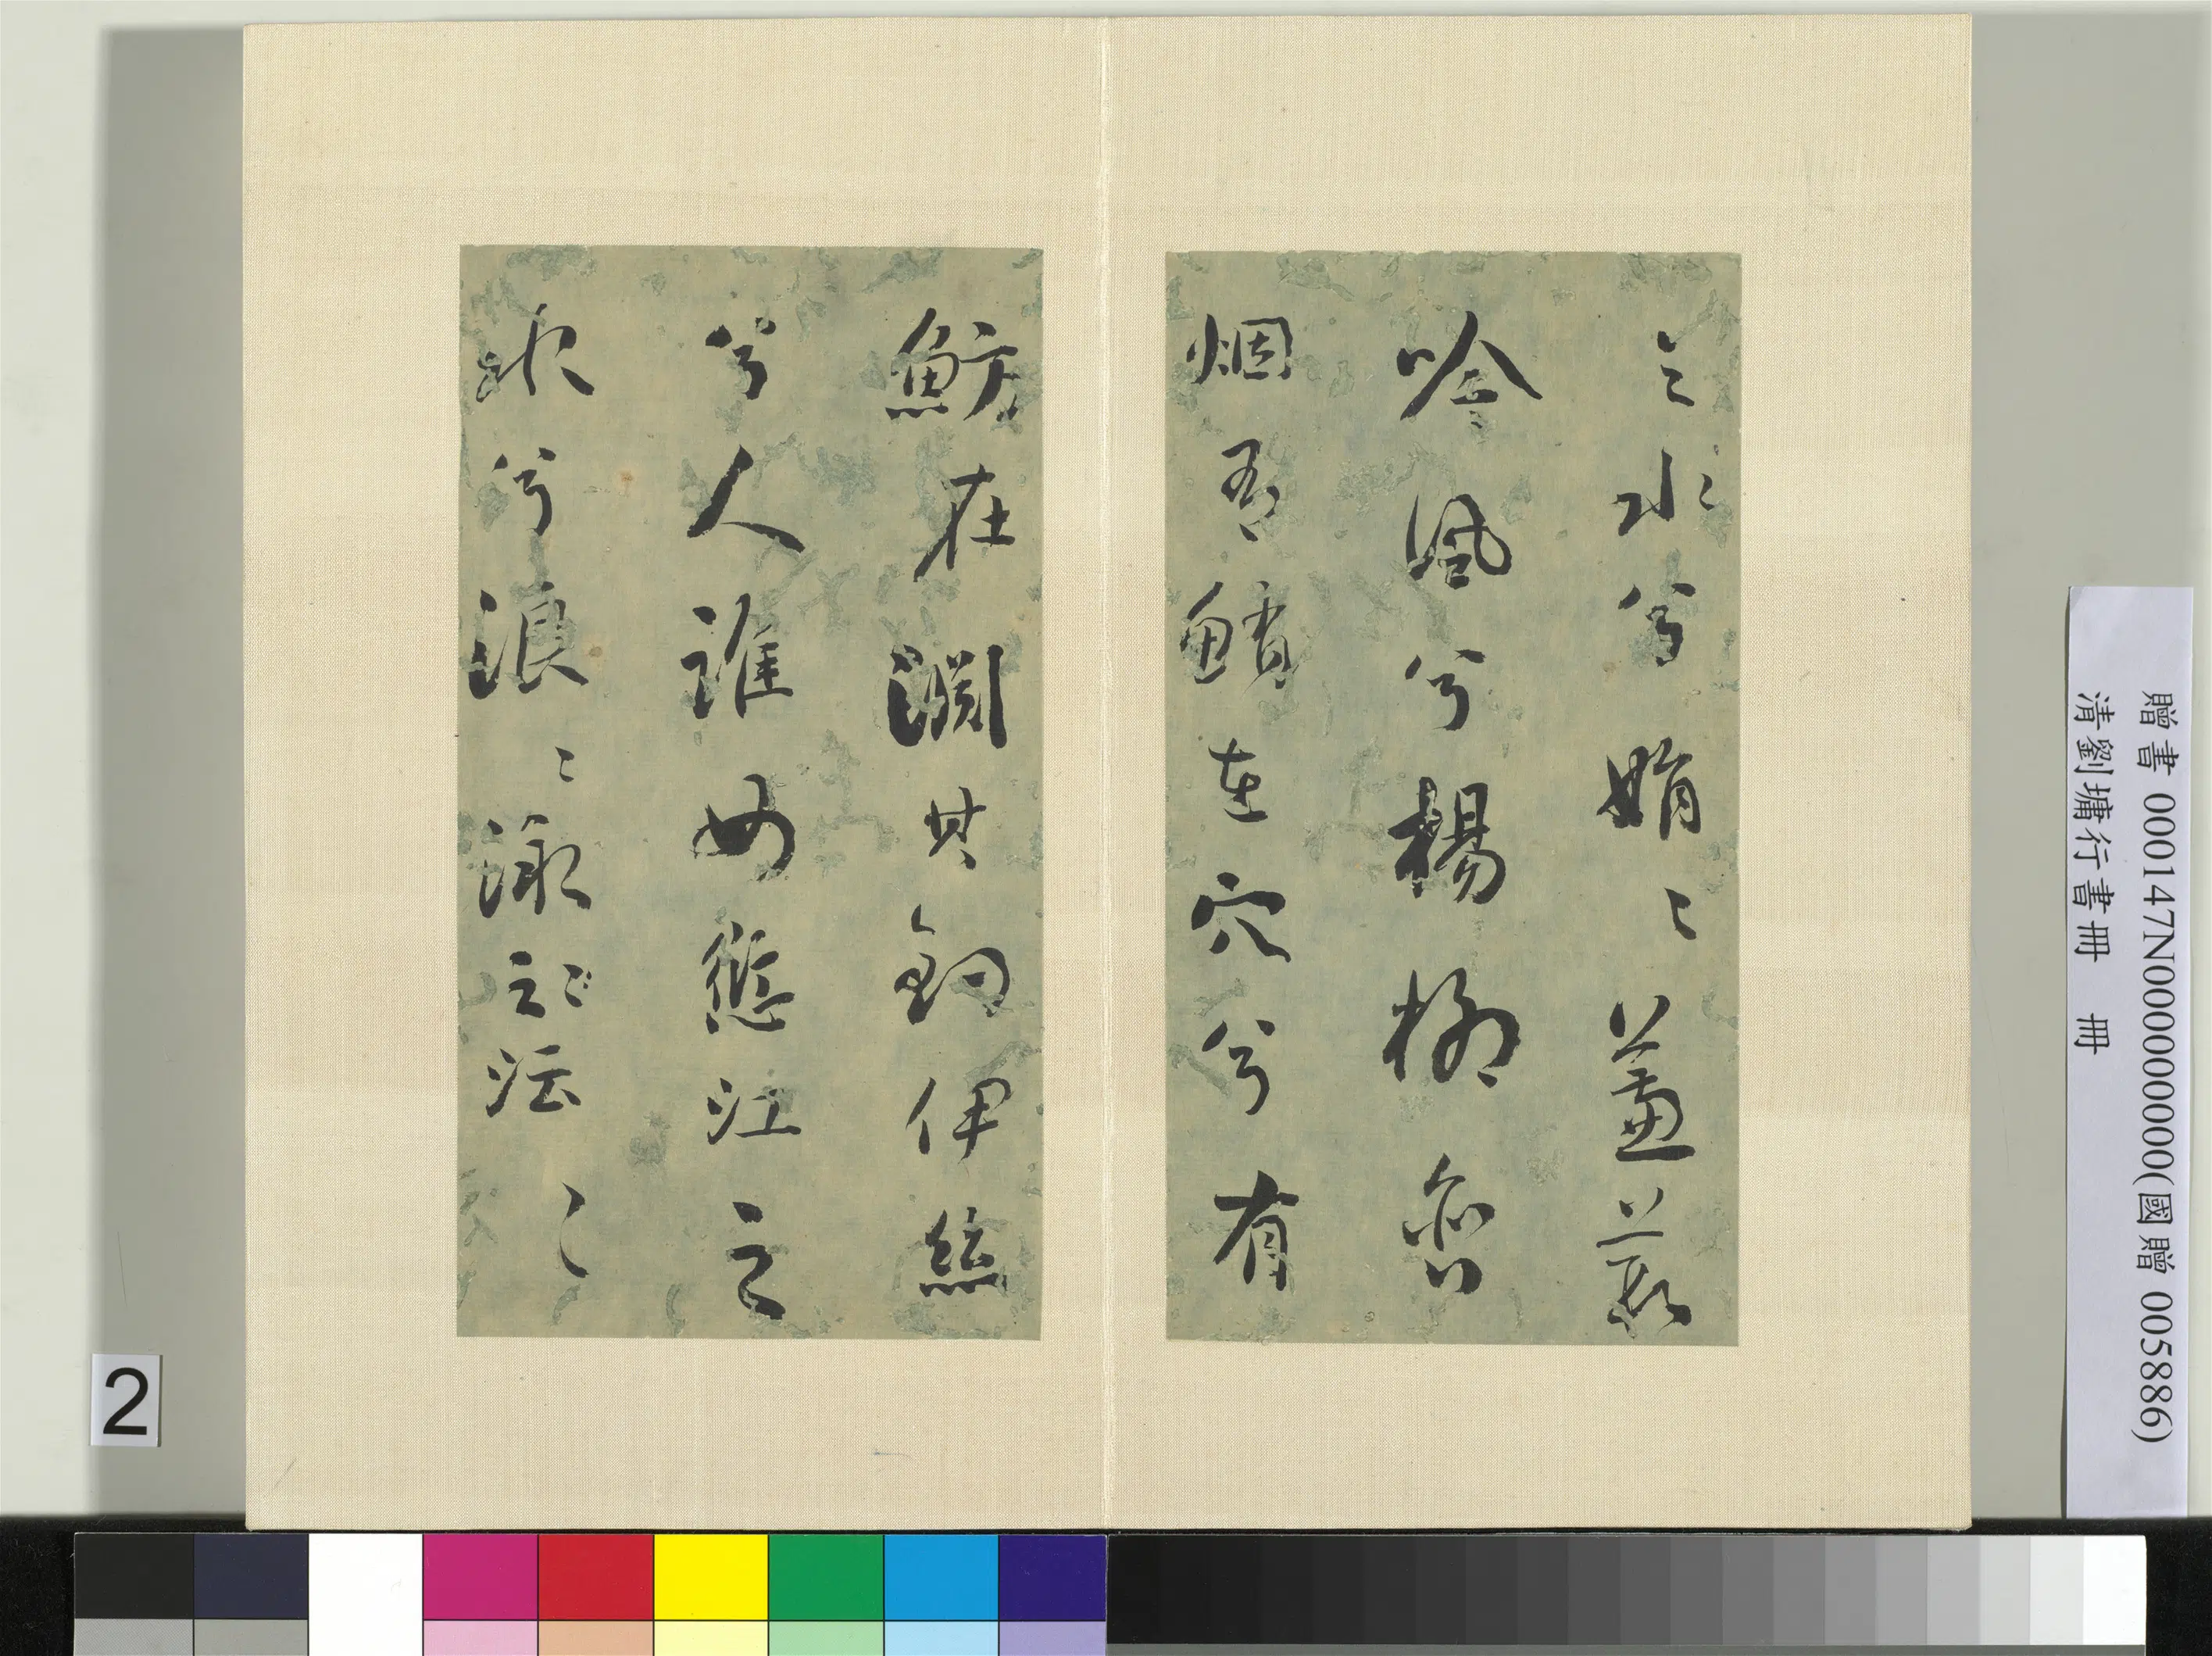 之水兮娟〻蒹葭
吟風兮楊柳含
烟吾在穴兮有
魴在淵其釣伊絲
兮人誰女愆江之
水兮浪〻漱之沄〻
贈書 000147N000000000(國贈 005886)
清劉墉行書冊 冊
2